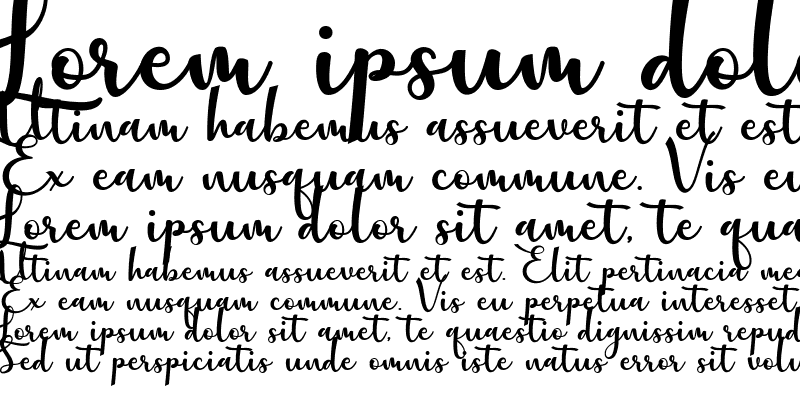 Lorem ipsum dol
Uttinam habemus assueverit et est
Ex eam nusquam commune. Vis eu
Lorem ipsum dolor sit amet, te qua
Uttinam habemus assueverit et est. Elit pertinacia me
Ex eam nusquam commune. Vis eu perpetua interesset
Lorem ipsum dolor sit amet, te quaestio dignissim repud
Sed ut perspiciatis unde omnis iste natus error sit volu